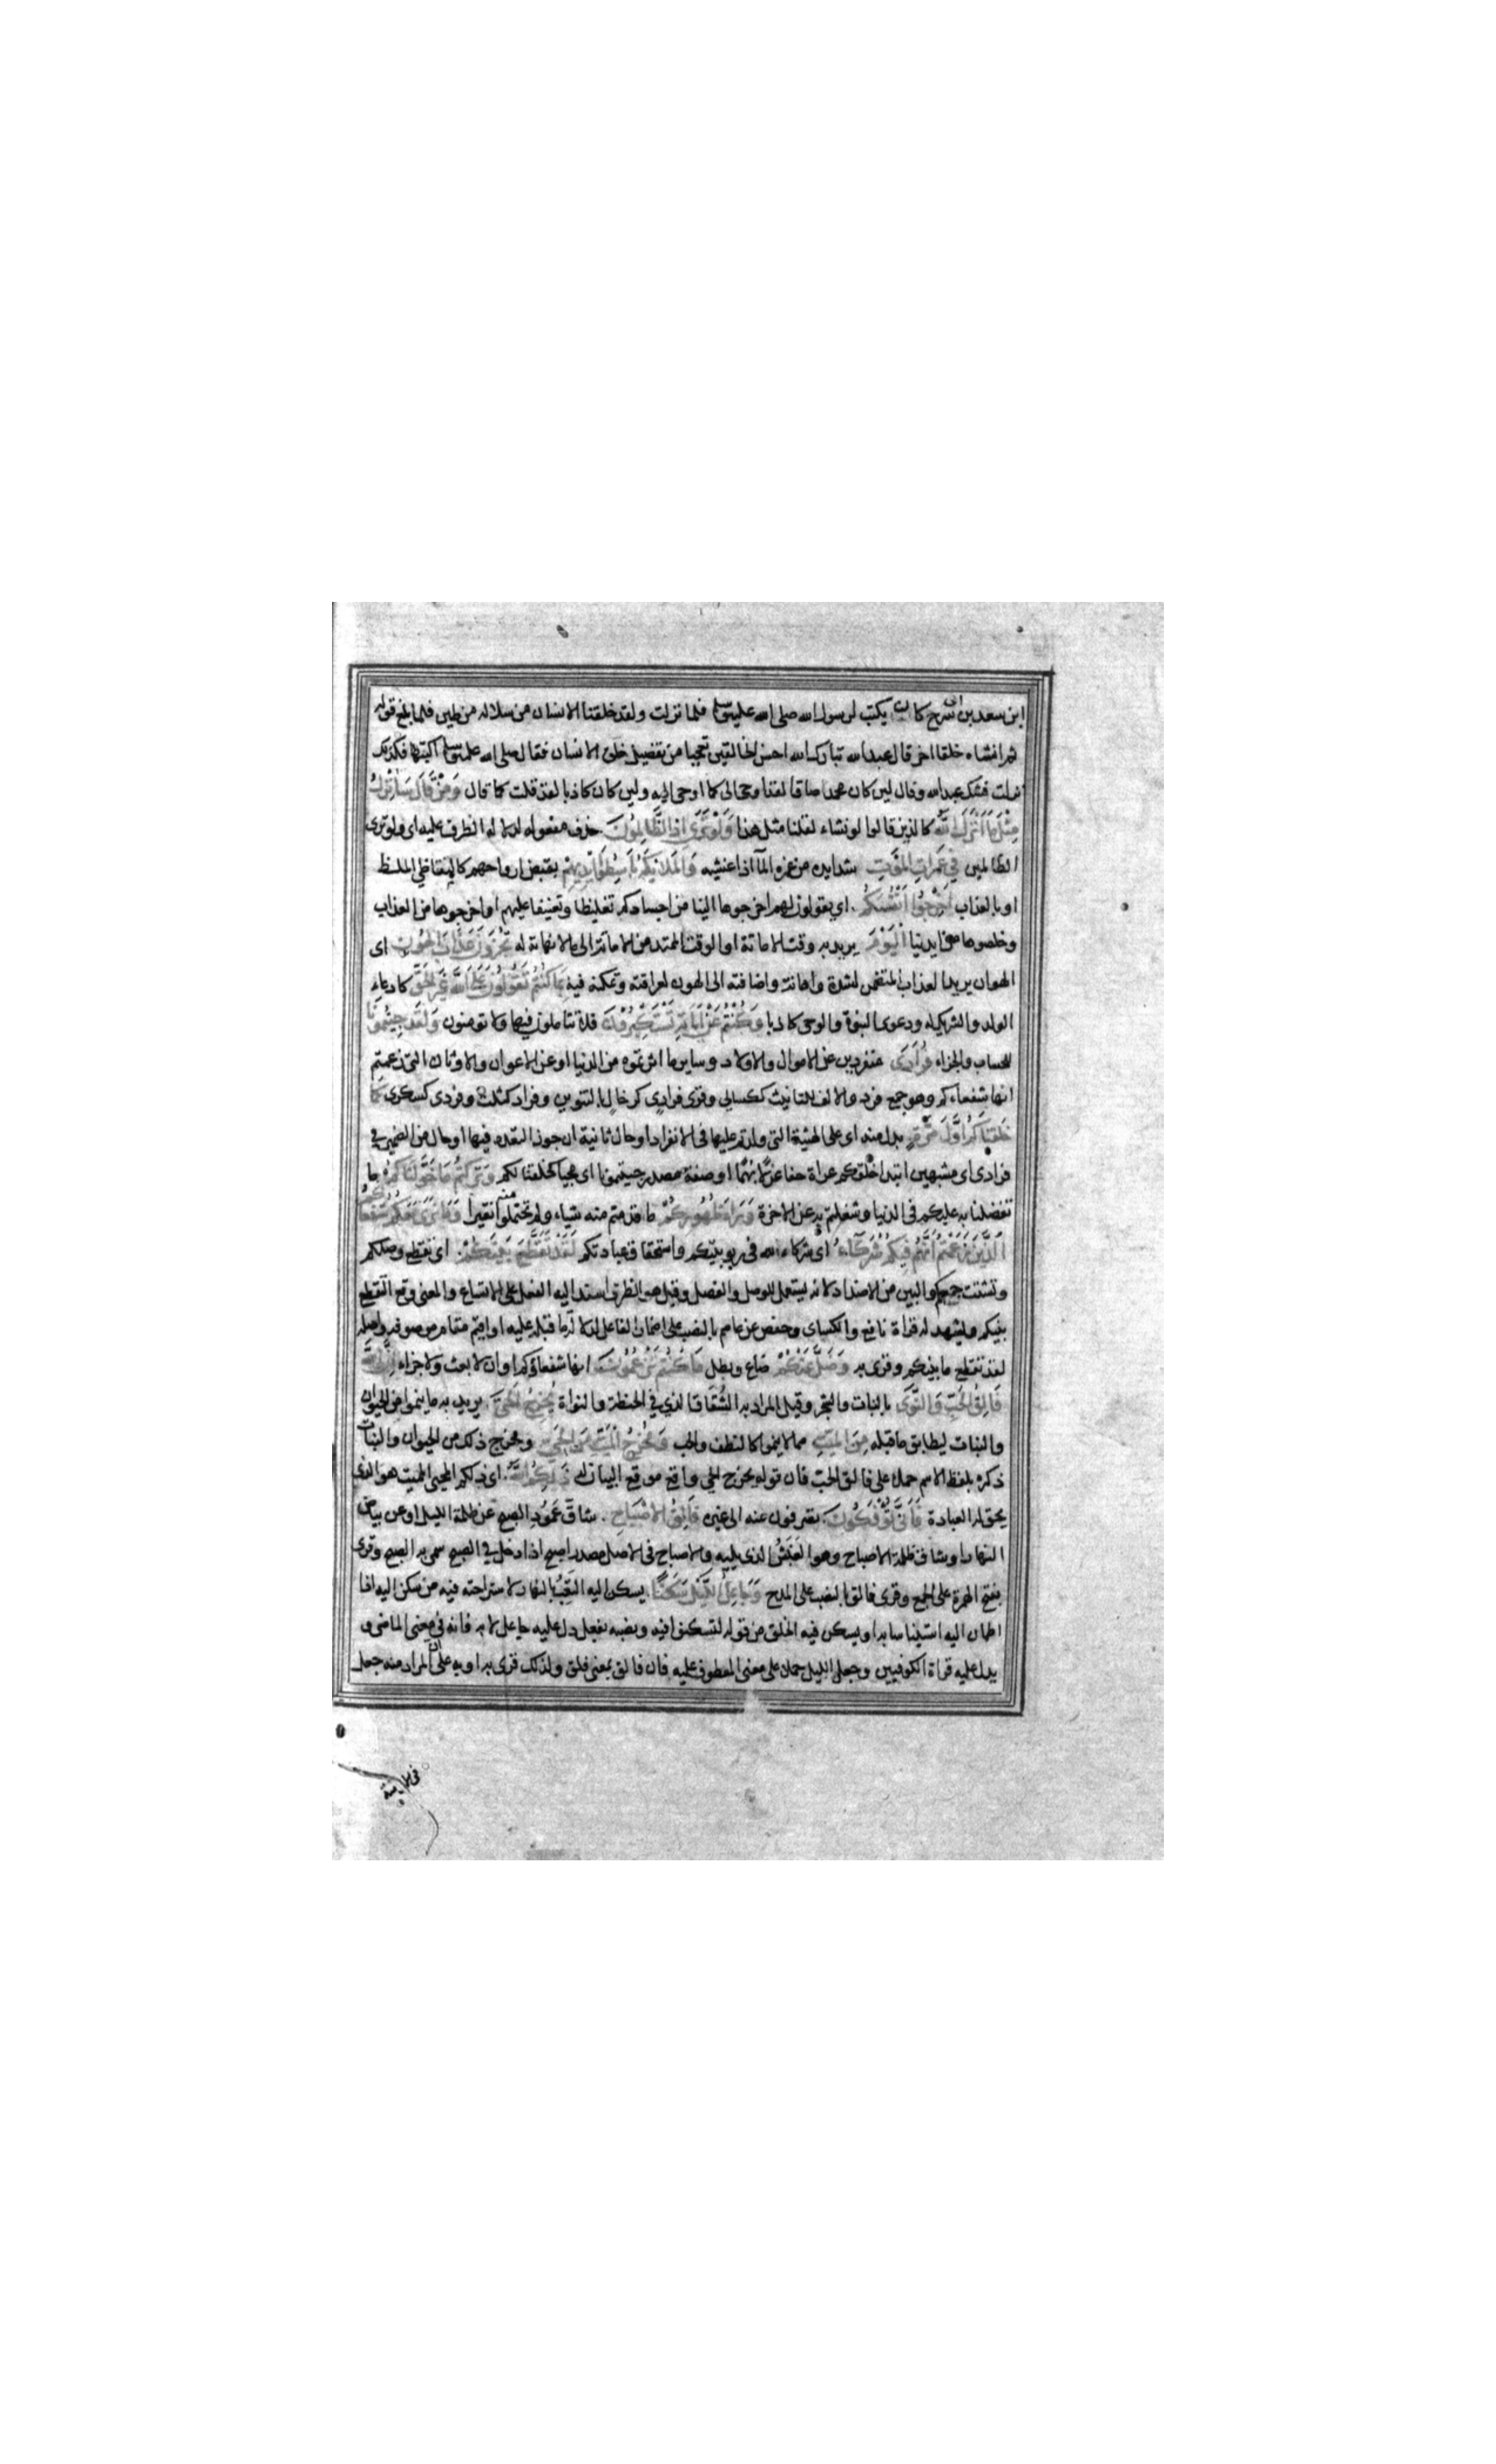 ابن سعد بن ابى سرح كان يكتب لرسول الله صلى الله عليه وسلم فلما نزلت ولقد خلقنا الانسان من سلالة من طين فلما بلغ قوله
ثم انشاه خلقا اخر قال عبد الله تبارك الله احسن الخالقين تعجبا من تفضيل خلق الانسان فقال صلى الله عليه وسلم اكتبها فكذلك
نزلت فشك عبد الله وقال لين كان محمد صادقا لقد اوحى الى كما اوحى اليه ولين كان كاذبا لقد قلت كما قال وَمَنْ قَالَ سَاُنْزِلُ
مِثْلَ مَا اَنْزَلَ اللّٰهُ كالذين قالوا لو نشاء لقلنا مثل هذا وَلَوْ تَرٰى اِذِ الظَّالِمُونَ حذف مفعوله لدلالة الظرف عليه اى ولو ترى
الظالمين فِي غَمَرَاتِ الْمَوْتِ شدايده من غمره الماء اذا غشيه وَالْمَلَائِكَةُ بَاسِطُوا اَيْدِيهِمْ بقبض ارواحهم كالمتقاظي الملظ
او بالعذاب اَخْرِجُوا اَنْفُسَكُمْ اى يقولون لهم اخرجوها الينا من اجسادكم تغليظا وتعنيفا عليهم او اخرجوها من العذاب
وخلصوها من ايدينا اَلْيَوْمَ يريد به وقت الاماتة او الوقت الممتد من الاماتة الى ما لا نهاية له تُجْزَوْنَ عَذَابَ الْهُونِ اى
الهوان يريد العذاب المتضمن لشدة واهانة واضافته الى الهون لعراقته وتمكنه فيه بِمَا كُنْتُمْ تَقُولُونَ عَلَى اللّٰهِ غَيْرَ الْحَقِّ كادعاء
الولد والشريك له ودعوى النبوة والوحى كاذبا وَكُنْتُمْ عَنْ اٰيَاتِهِ تَسْتَكْبِرُونَ فلا تتاملون فيها ولا تومنون وَلَقَدْ جِئْتُمُونَا
للحساب والجزاء فُرَادٰى منفردين عن الاموال والاولاد وساير ما اثرتموه من الدنيا او عن الاعوان والاوثان التى زعمتم
انها شفعاءكم وهو جمع فرد والالف للتانيث ككسالى وقرى فرادى كرخال بالتنوين وفراد كثلاث وفردى كسكرى كَمَا
خَلَقْنَاكُمْ اَوَّلَ مَرَّةٍ بدل منه اى على الهيئة التى ولدتم عليها فى الانفراد او حال ثانية ان جوز التعدد فيها او حال من الضمير فى
فرادى اى مشبهين ابتدا خلقكم عراة حفاة غرلا بهما او صفة مصدر جيتمونا اى مجيا كخلقنا لكم وَتَرَكْتُمْ مَا خَوَّلْنَاكُمْ ما
تفضلنا به عليكم فى الدنيا وشغلتم به عن الاخرة وَرَاءَ ظُهُورِكُمْ ما قدمتم منه شياء ولم تحتملوا منه نقيرا وَمَا نَرٰى مَعَكُمْ شُفَعَاءَكُمُ
الَّذِينَ زَعَمْتُمْ اَنَّهُمْ فِيكُمْ شُرَكَاءُ اى شركاء الله فى ربوبيتكم واستحقاق عبادتكم لَقَدْ تَقَطَّعَ بَيْنَكُمْ اى تقطع وصلكم
وتشتت جمعكم والبين من الاضداد لانه يستعمل للوصل والفصل وقيل هو الظرف اسند اليه الفعل على الاتساع والمعنى وقع التقطع
بينكم ويشهد له قراة نافع والكساى وحفص عن عاصم بالنصب على اضمار الفاعل لدلالة ما قبله عليه او اقيم مقام موصوفه واصله
لقد تقطع ما بينكم وقرى به وَضَلَّ عَنْكُمْ ضاع وبطل مَا كُنْتُمْ تَزْعُمُونَ انها شفعاؤكم او ان لا بعث ولا جزاء اِنَّ اللّٰهَ
فَالِقُ الْحَبِّ وَالنَّوٰى بالنبات والشجر وقيل المراد به الشقاق الذى فى الحنطة والنواة يُخْرِجُ الْحَيَّ يريد به ما ينموا من الحيوان
والنبات ليطابق ما قبله مِنَ الْمَيِّتِ مما لا ينموا كالنطف والحب وَمُخْرِجُ الْمَيِّتِ مِنَ الْحَيِّ ومخرج ذلك من الحيوان والنبات
ذكره بلفظ الاسم حملا على فالق الحب فان قوله يخرج الحى واقع موقع البيان له ذٰلِكُمُ اللّٰهُ اى ذلكم المحيى المميت هو الذى
يحق له العبادة فَاَنّٰى تُؤْفَكُونَ تصرفون عنه الى غيره فَالِقُ الْاِصْبَاحِ شاق عمود الصبح عن ظلمة الليل او عن بياض
النهار او شاق ظلمة الاصباح وهو الغبش الذى يليه والاصباح فى الاصل مصدر اصبح اذا دخل فى الصبح سمى به الصبح وقرى
بفتح الهمزة على الجمع وقرى فالق بالنصب على المدح وَجَاعِلُ اللَّيْلِ سَكَنًا يسكن اليه التعب بالنهار لاستراحته فيه من سكن اليه اذا
اطمان اليه استيناسا به او يسكن فيه الخلق من قوله لتسكنوا فيه ونصبه بفعل دل عليه جاعل لا به فانه فى معنى الماضى و
يدل عليه قراة الكوفيين وجعل الليل حملا على معنى المعطوف عليه فان فالق بمعنى فلق ولذلك قرى به او به على ان المراد منه جعل